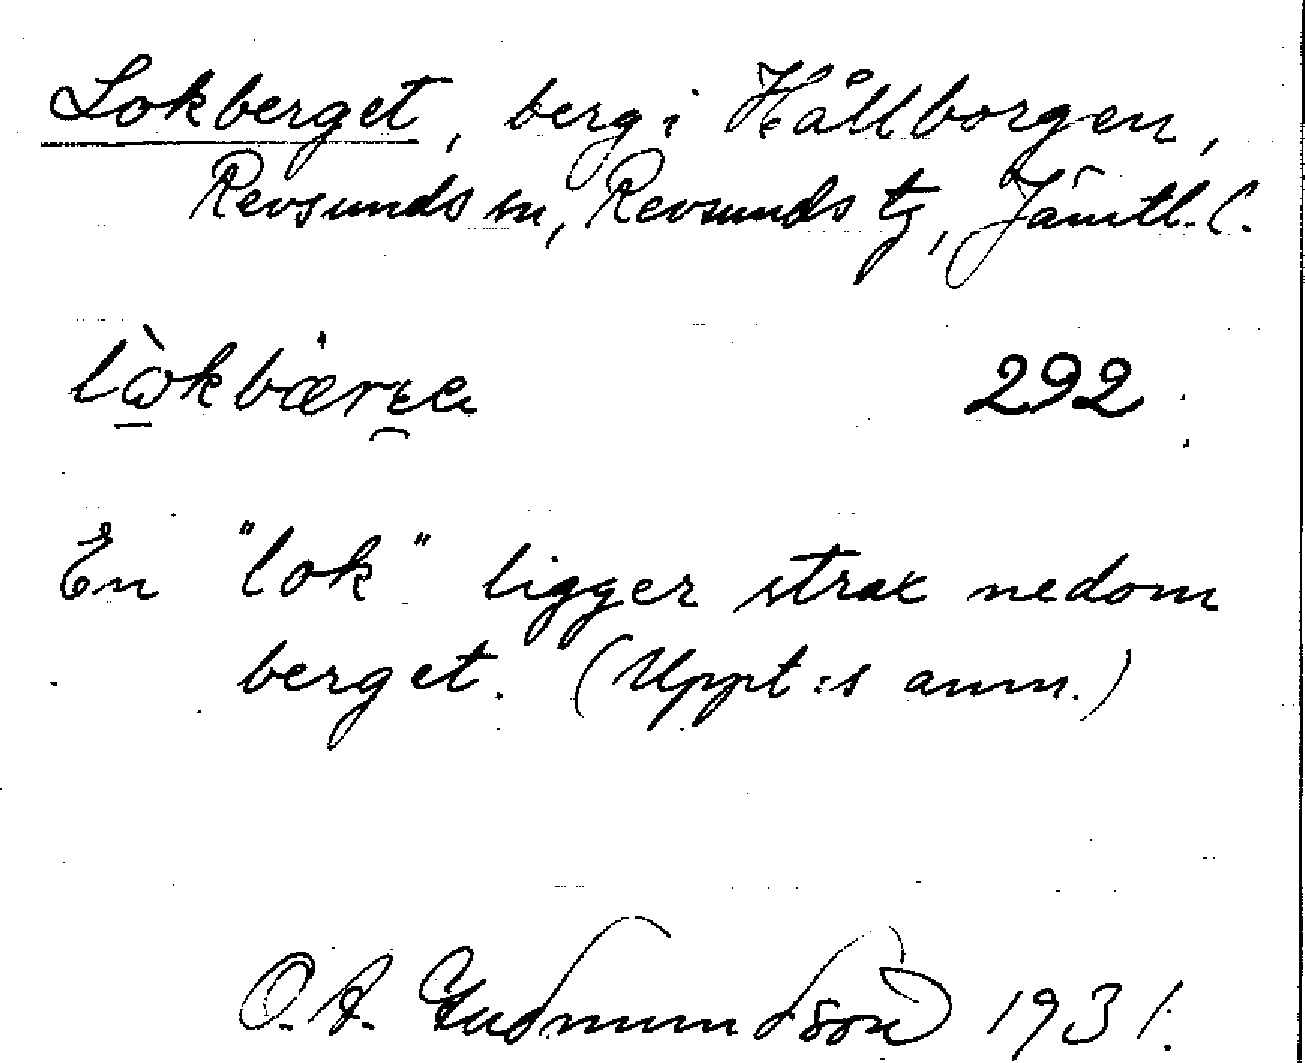 Lokberget, berg i Hållborgen,
Revsunds sn, Revsunds tg, Jämtl. l.
292
En "lok" ligger strax nedom
berget. (Uppt:s anm.)
O. A. Gudmundsson 1931.